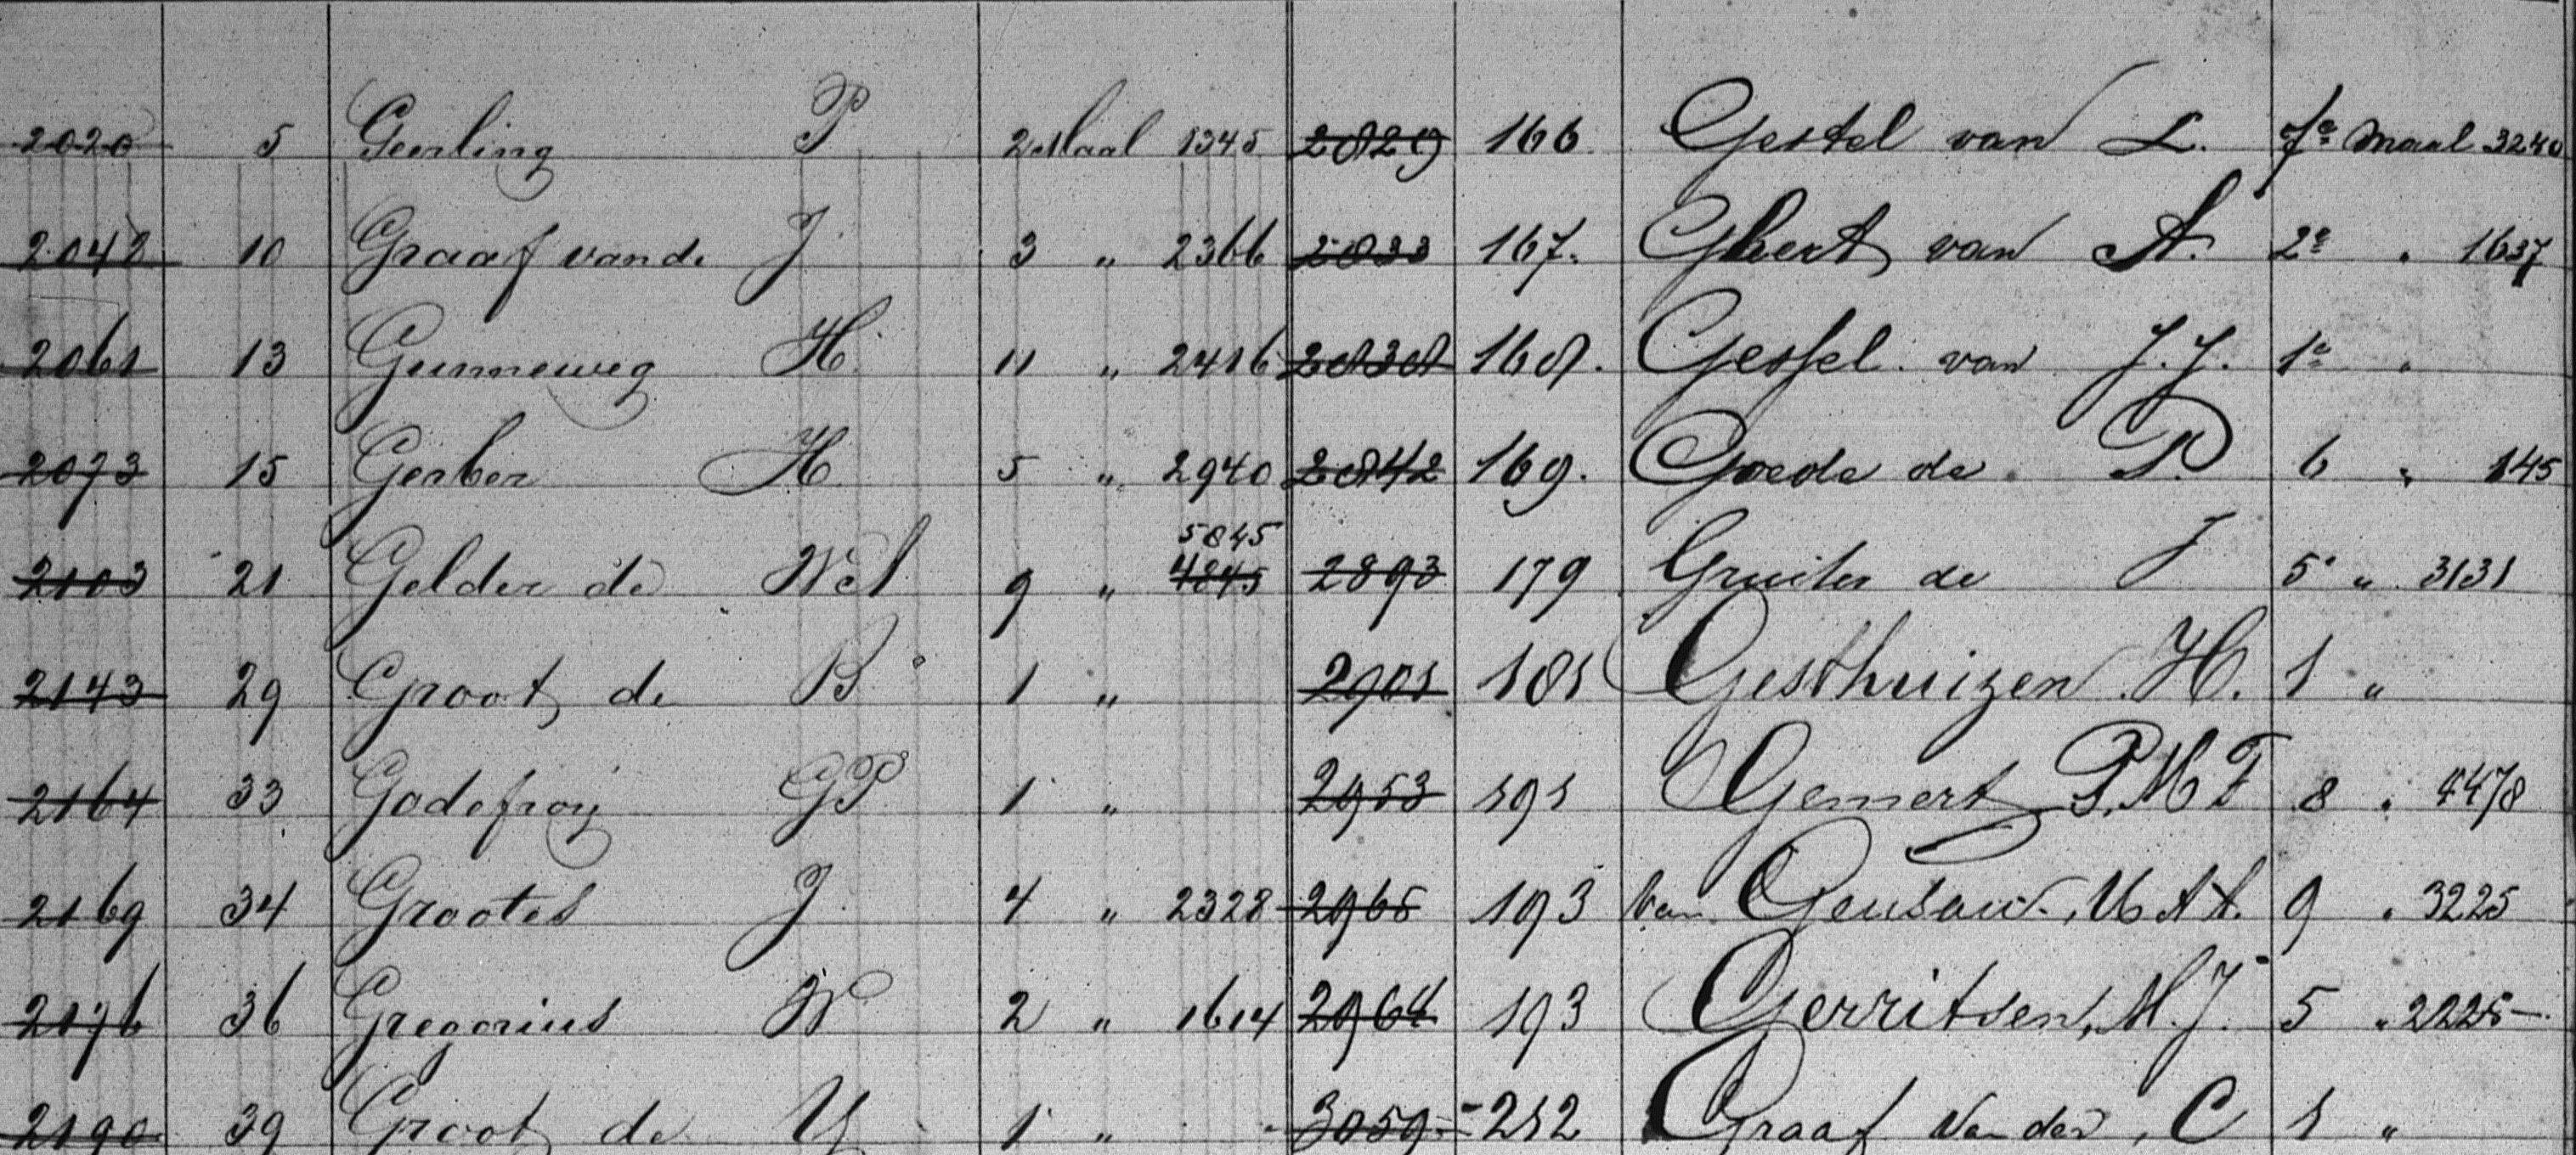 2020 5 Geerling P 2 Maal 1345 2829 166 Gestel van L. 7e Maal 3240
2042 10 Graaf vande J 3 " 2366 2833 167. Ghert van A. 2e " 1637
2061 13 Gunneweg H 11 " 2416 2838 168. Gessel van J.J. 1e "
2073 15 Gerber H 5 " 2940 2842 169. Goede de P. 6 " 145
5845
2103 21 Gelder de 9 " 4845 2893 179 Gruiter de J 5 " 3131
2143 29 Groot de B 1 " 2901 181 Gesthuizen H. 1 "
2164 33 Godefroij GP 1 " 2953 191 Gemert P.M F 8 " 4478
2169 34 Grootes J 4 " 2328 2965 193 van Geusau. M A A. 9 " 3225
2176 36 Gregorius W 2 " 1614 2964 193 Gerritsen, M.J. 5 " 2225-
2190 39 Groot de 1 " 3059 - 212 Graaf Van der, C 1 "